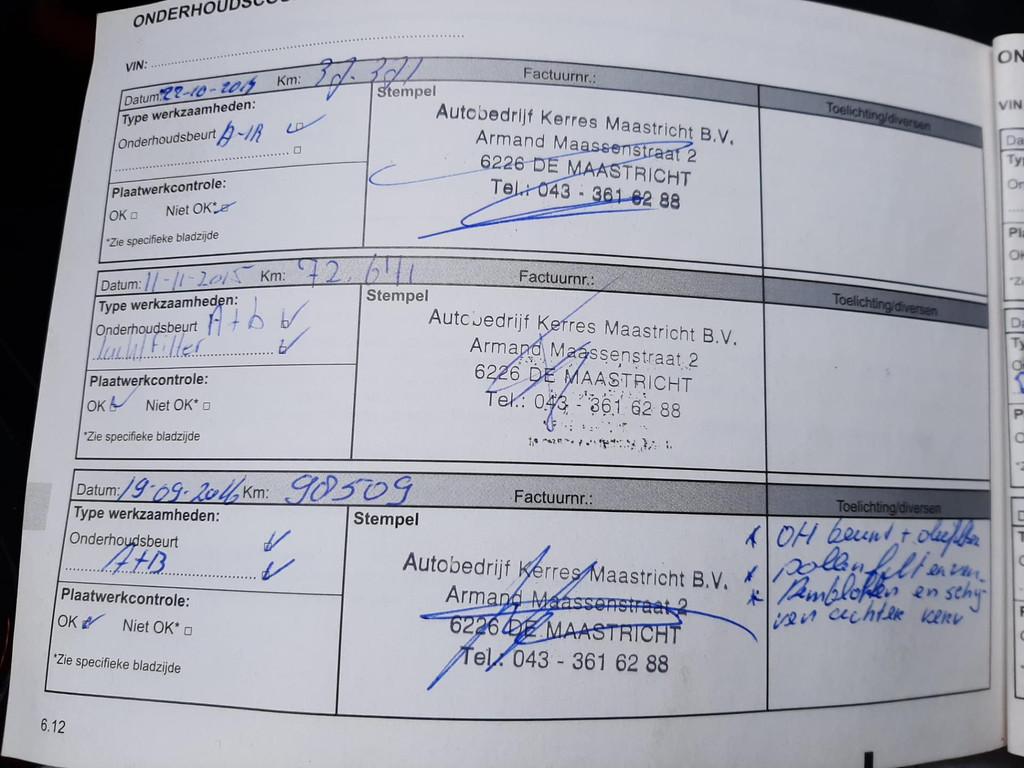 ONDERHOUDSCO
VIN:
Datum: 22-10-201 Km: Factuurnr.:
Type werkzaamheden:
Onderhoudsbeurt
Plaatwerkcontrole:
OK Niet OK*
*Zie specifieke bladzijde
Stempel
Autobedrijf Kerres Maastricht B.V.
Armand Maassenstraat 2
6226 DE MAASTRICHT
Tel.: 043 - 361 62 88
Toelichting/diversen
Datum: 11-11-2015 Km: 72.641 Factuurnr.:
Type werkzaamheden:
Onderhoudsbeurt A+b
luchtfilter
Plaatwerkcontrole:
OK Niet OK*
*Zie specifieke bladzijde
Stempel
Autobedrijf Kerres Maastricht B.V.
Armand Maassenstraat 2
6226 DE MAASTRICHT
Tel.: 043 - 361 62 88
Toelichting/diversen
Datum: 19-09-2016 Km: 98509 Factuurnr.:
Type werkzaamheden:
Onderhoudsbeurt
A+B
Plaatwerkcontrole:
OK Niet OK*
*Zie specifieke bladzijde
Stempel
Autobedrijf Kerres Maastricht B.V.
Armand Maassenstraat 2
6226 DE MAASTRICHT
Tel.: 043 - 361 62 88
Toelichting/diversen
* OH beurt +
* pollenfilt en
* Remblokken en schij
ven achter
6.12
ON
VIN